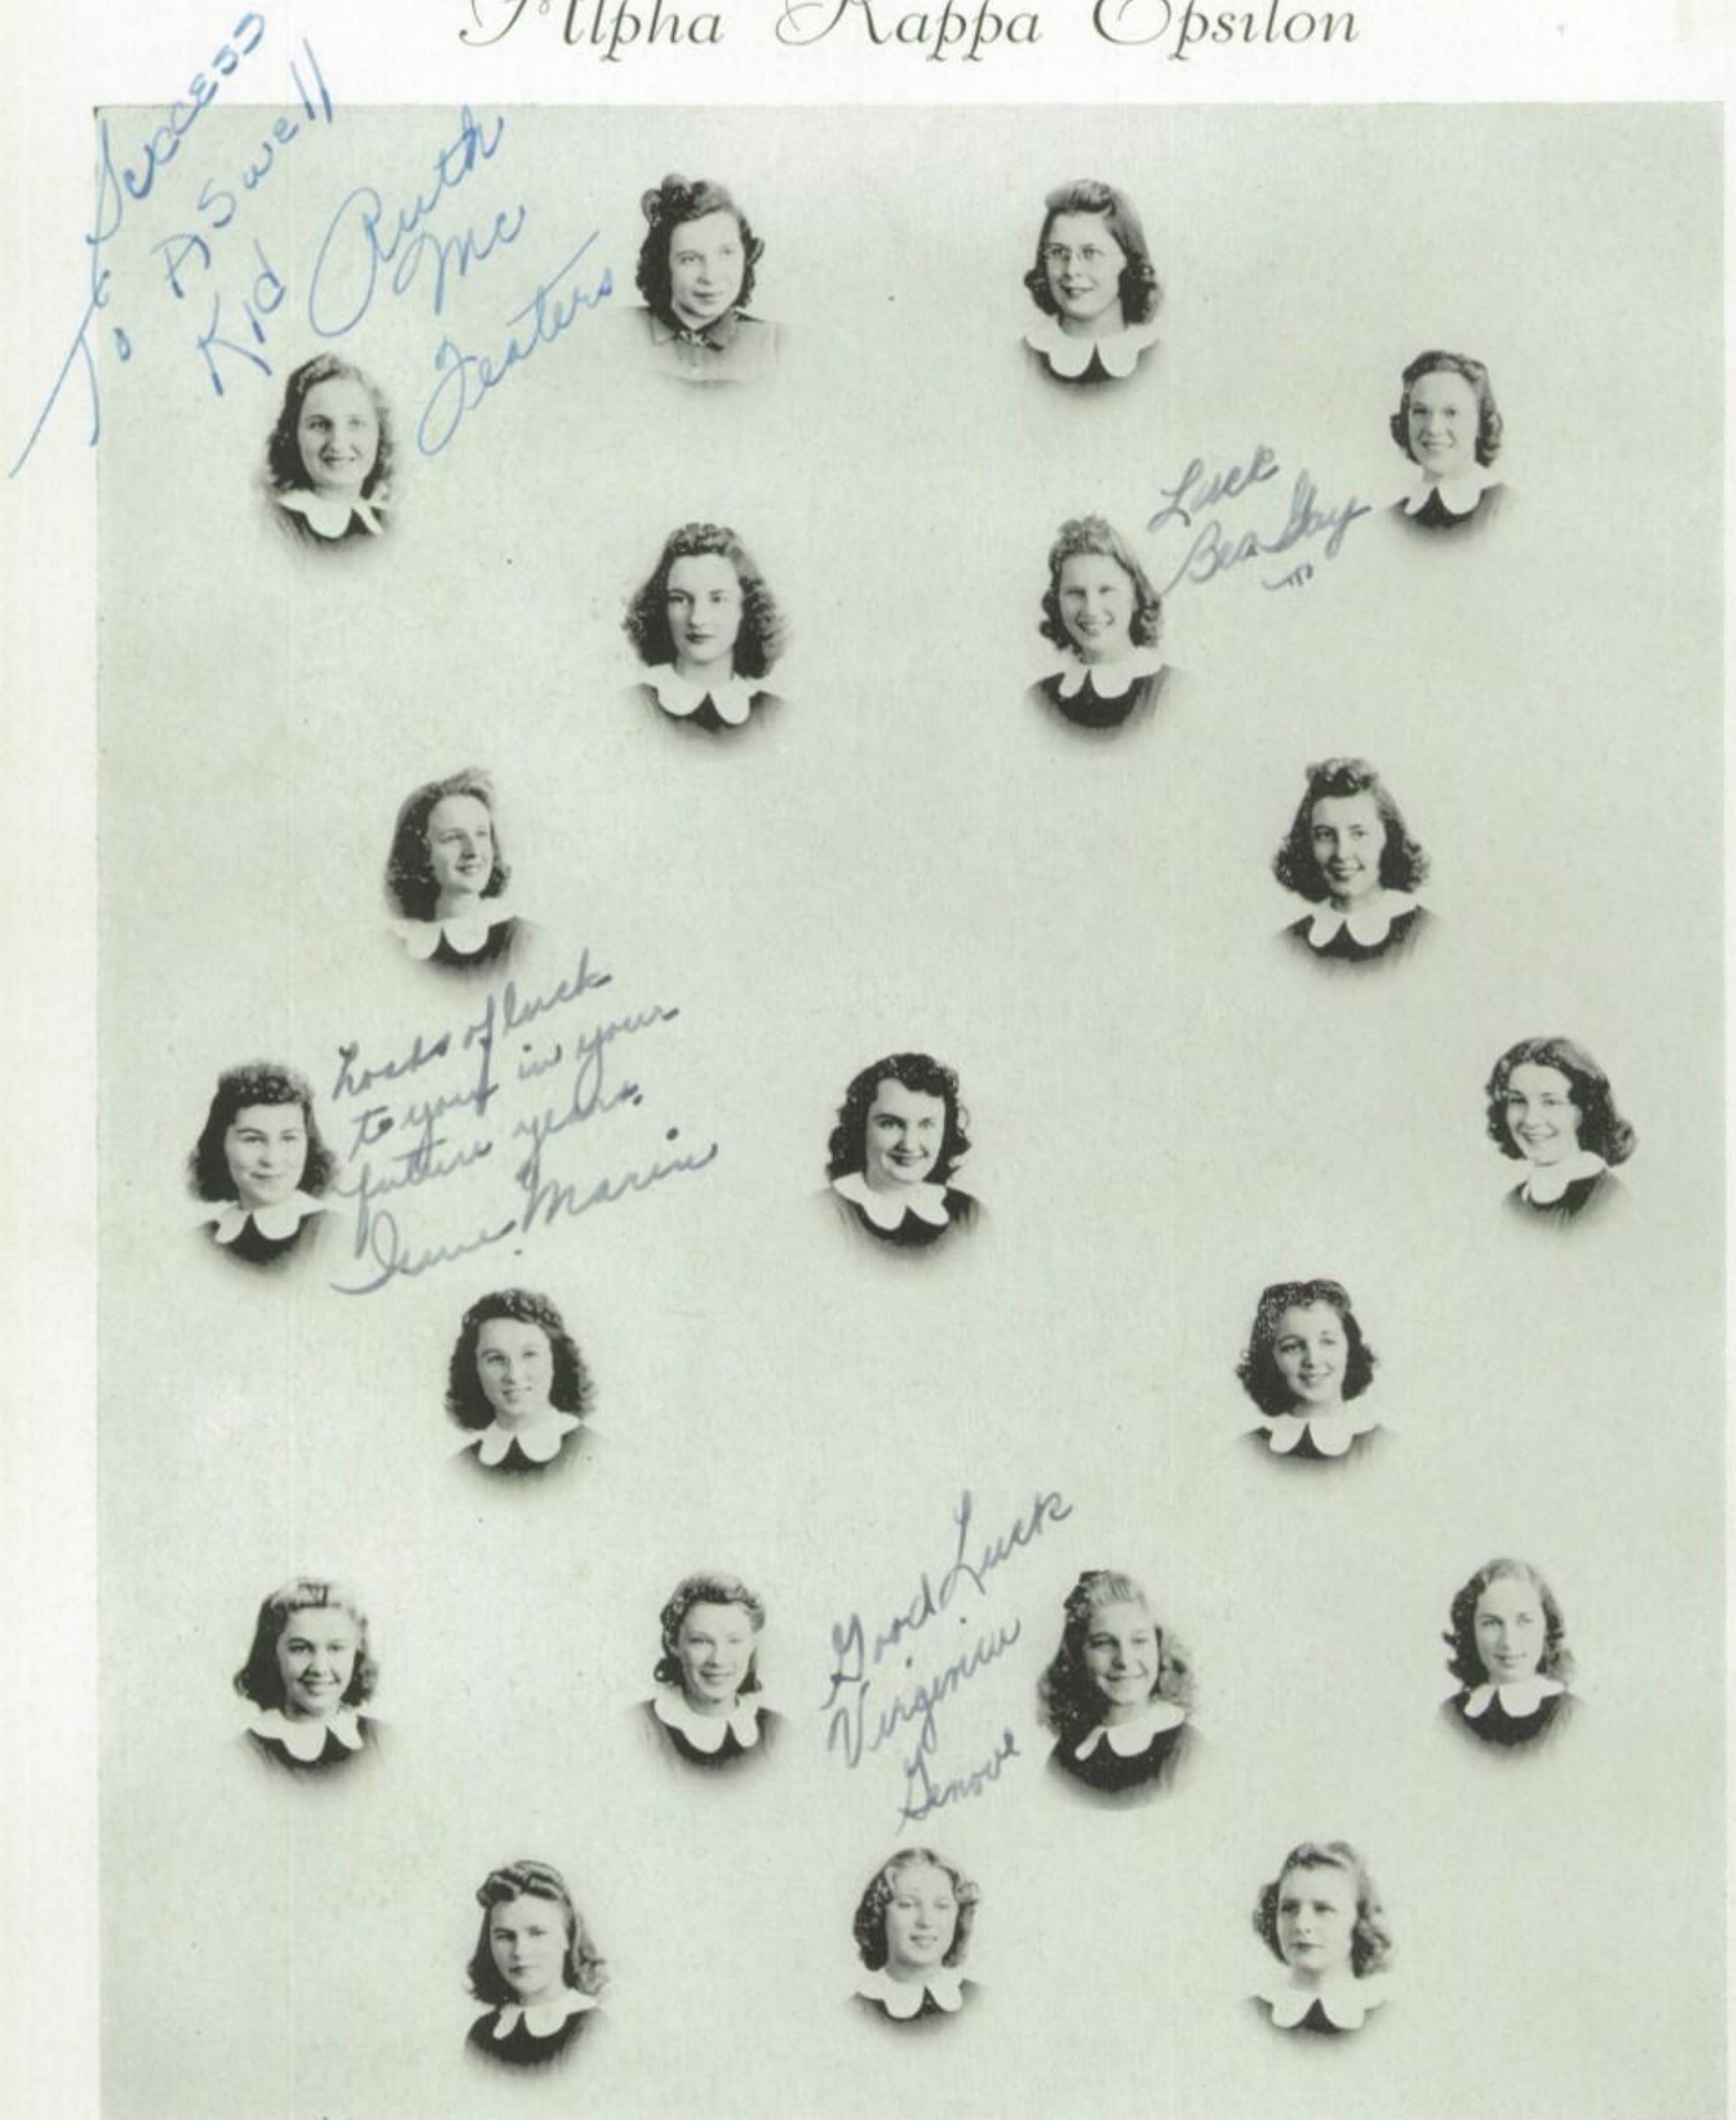 Alpha Kappa Epsilon
Success
To A Swell
Kid Ruth
Mc
Featers
Luck
Bea Gay
Loads of luck
to you in your
future years.
Irene Marin
Good Luck
Virginia
Genove